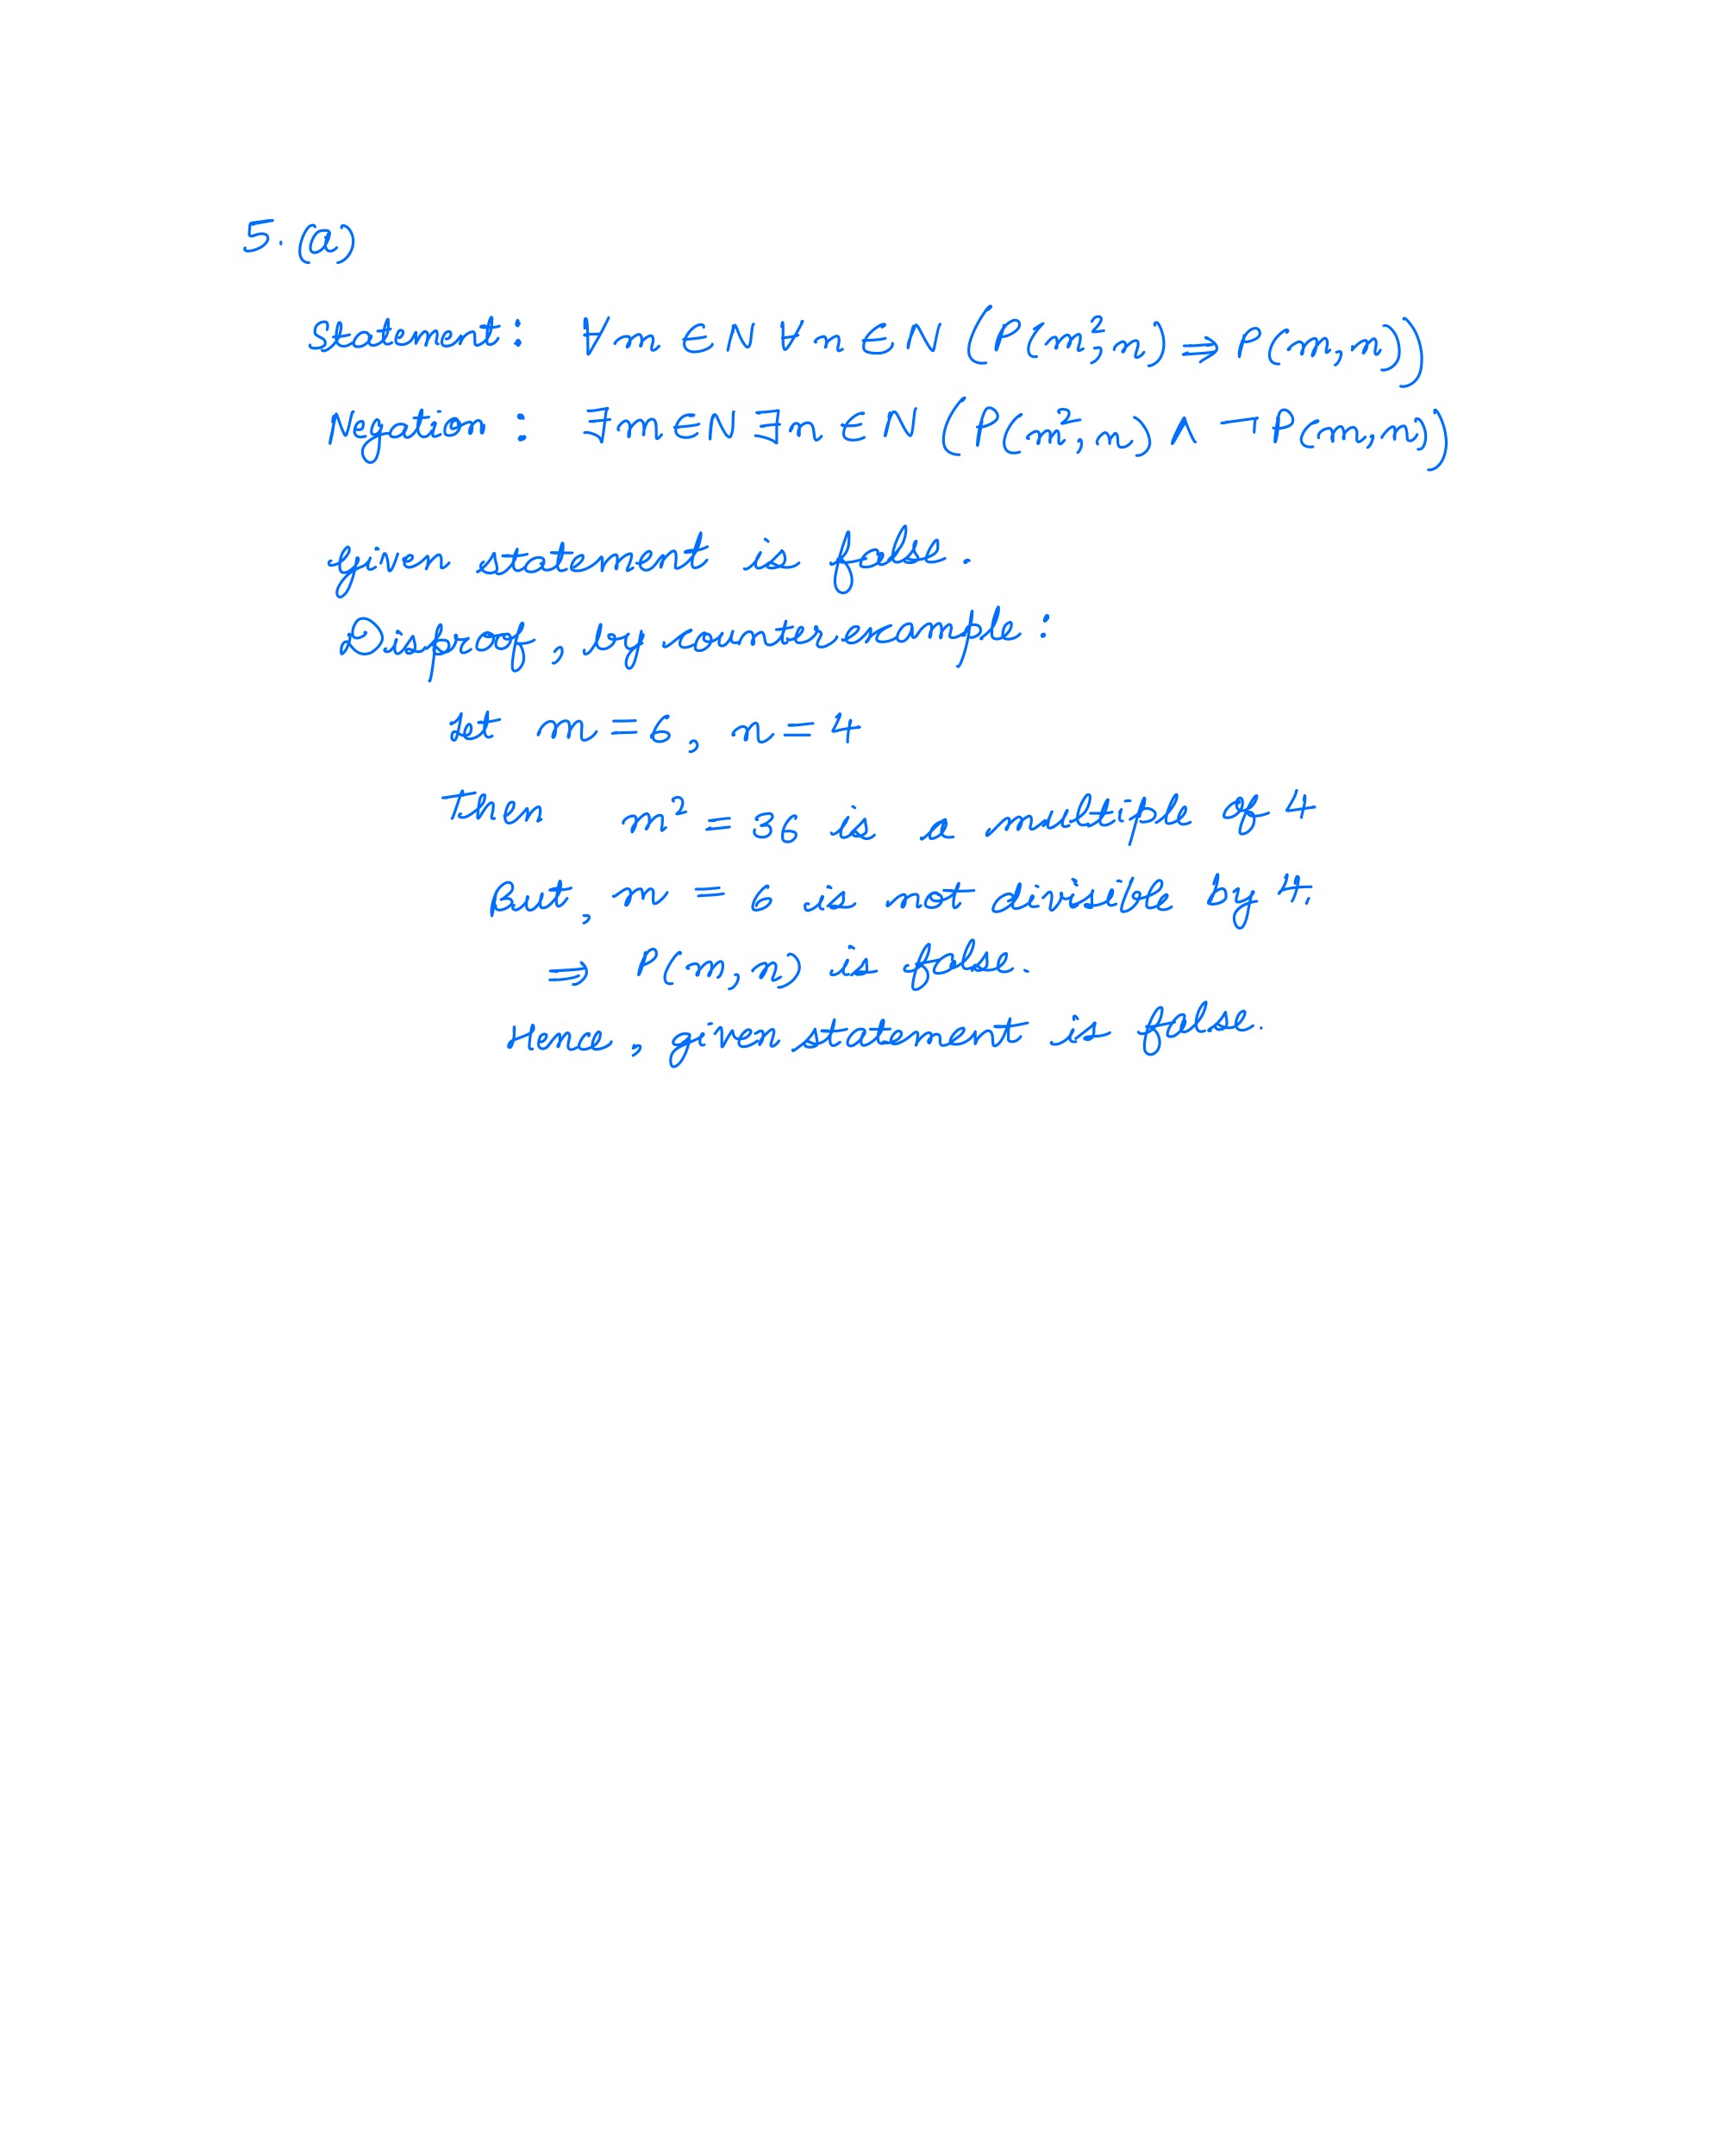 5. (a)
Statement: ∀ m ∈ N ∀ n ∈ N (P(m², n) ⇒ P(m, n))
Negation: ∃ m ∈ N ∃ n ∈ N (P(m², n) ∧ ¬ P(m, n))
Given statement is false.
Disproof, by counterexample:
Let m = 6, n = 4
Then m² = 36 is a multiple of 4
But, m = 6 is not divisible by 4.
⇒ P(m, n) is false.
Hence, given statement is false.